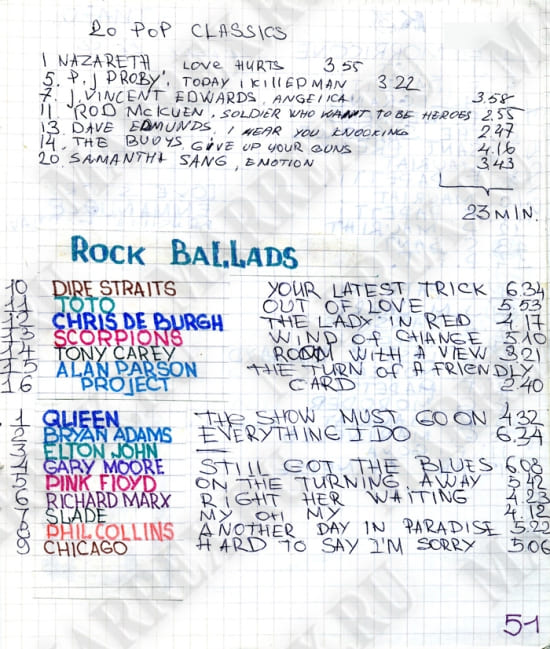 20 POP CLASSICS
1 NAZARETH LOVE HURTS 3 55
5. P. J PROBY, TODAY I KILLED MAN 3 22
7. J, VINCENT EDWARDS, ANGELICA 3.58
11. ROD MCKUEN, SOLDIER WHO WANT TO BE HEROES 2.55
13. DAVE EDMUNDS, I HEAR YOU KNOCKING 2.47
14. THE BUOYS, GIVE UP YOUR GUNS 4.16
20. SAMANTHA SANG, EMOTION 3,43
23 MIN.
ROCK BALLADS
10 DIRE STRAITS YOUR LATEST TRICK 6.34
11 TOTO OUT OF LOVE 5.53
12 CHRIS DE BURGH THE LADY IN RED 4.17
13 SCORPIONS WIND OF CHANGE 5.10
14 TONY CAREY ROOM WITH A VIEW 3.21
15 ALAN PARSON THE TURN OF A FRIENDLY
16 PROJECT CARD 2.40
1 QUEEN THE SHOW MUST GO ON 4.32
2 BRYAN ADAMS EVERYTHING I DO 6.34
3 ELTON JOHN
4 GARY MOORE STILL GOT THE BLUES 6.08
5 PINK FLOYD ON THE TURNING AWAY 5.42
6 RICHARD MARX RIGHT HER WAITING 4.23
7 SLADE MY OH MY 4.12
8 PHIL COLLINS ANOTHER DAY IN PARADISE 5.22
9 CHICAGO HARD TO SAY I'M SORRY 5.06
51